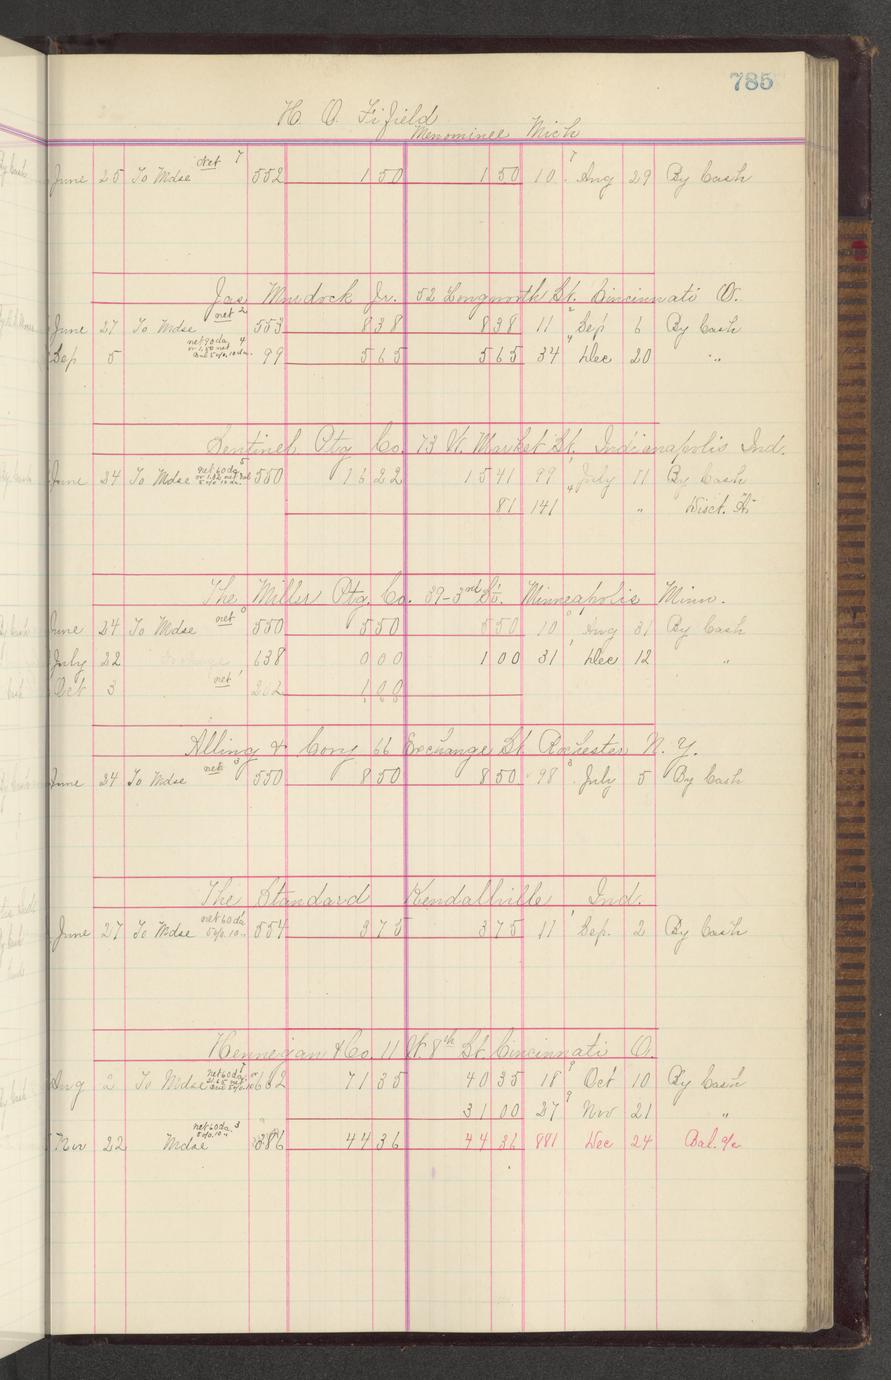 785
H. O. Fifield
Menominee Mich
June 25 To Mdse net 7 552 1 50 1 50 10 7 Aug 29 By Cash
Jas Murdock Jr. 52 Longworth St. Cincinnati O.
June 27 To Mdse net 2 553 8 38 8 38 11 2 Sep 6 By Cash
Sep 5 net 90 da 4 99 5 65 5 65 34 4 Dec 20 "
Sentinel Ptg Co. 73 W. Market St. Indianapolis Ind.
June 24 To Mdse net 60 da 5 550 16 22 15 41 99 July 11 By Cash
81 141 4 " Disct. %
The Miller Ptg. Co. 39-3rd St. Minneapolis Minn.
June 24 To Mdse net 0 550 5 50 5 50 10 0 Aug 31 By Cash
July 22 638 0 00 1 00 31 1 Dec 12 "
Oct 3 net 1 202 1 00
Alling & Cory 66 Exchange St. Rochester N. Y.
June 24 To Mdse net 3 550 8 50 8 50 98 3 July 5 By Cash
The Standard Kendallville Ind.
June 27 To Mdse net 60 da 5%. 10 " 554 3 75 3 75 11 1 Sep. 2 By Cash
Hennegan & Co. 11 W. 8th St. Cincinnati O.
Aug 2 To Mdse net 60 da 662 71 35 40 35 18 9 Oct 10 By Cash
31 00 27 9 Nov 21 "
Nov 22 Mdse net 60 da. 3 5%. 10 " 386 44 36 44 36 881 Dec 24 Bal. %